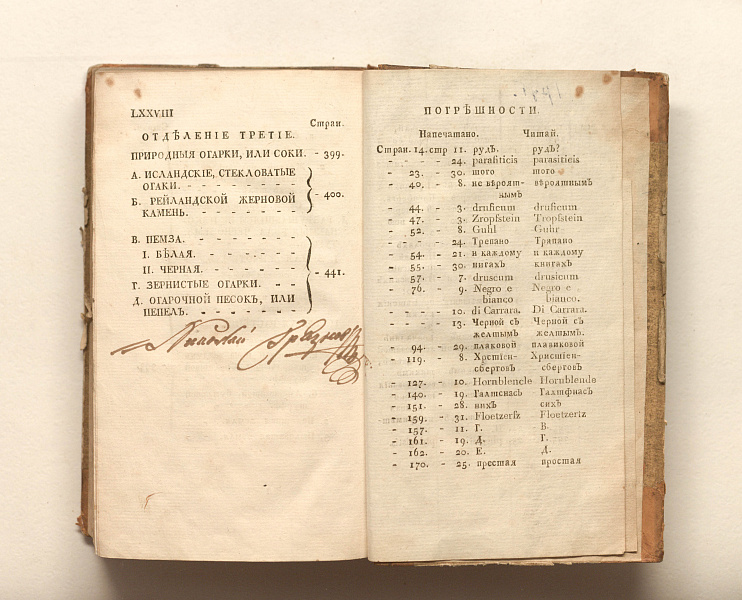 LXXVIII
Стран.
ОТДѢЛЕНІЕ ТРЕТІЕ.
ПРИРОДНЫЯ ОГАРКИ, ИЛИ СОКИ. - 399.
А. ИСЛАНДСКІЕ, СТЕКЛОВАТЫЕ
ОГАКИ. - - - - - - -
- 400.
Б. РЕЙЛАНДСКОЙ ЖЕРНОВОЙ
КАМЕНЬ. - - - - - -
В. ПЕМЗА. - - - - - - -
I. БѢЛАЯ. - - - - - -
II. ЧЕРНАЯ. - - - - - -
- 441.
Г. ЗЕРНИСТЫЕ ОГАРКИ. - - -
Д. ОГАРОЧНОЙ ПЕСОКЪ, ИЛИ
ПЕПЕЛЪ. - - - - - - -
Николай
ПОГРѢШНОСТИ.
Напечатано. Читай.
Стран. 14. стр 11. рудъ. рудъ?
- - - - 24. parafiticis parasiticis
- 23. - 30. шого того
- 40. - 8. не вѣроят- вѣроятнымъ
нымъ
- 44. - 3. druficum druficum
- 47. - 3. Zropfstein Tropfstein
- 52. - 8. Guhl Guhr
- - - - 24. Трепано Тряпано
- 54. - 21. и каждому и каждому
- 55. - 30. нигахъ книгахъ
- 57. - 7. druscum drusicum
- 76. - 9. Negro e Negro e
bianco bianco.
- - - - 10. di Carrara. Di Carrara.
- - - - 13. Черной съ Черной съ
желтымъ желтымъ.
- 94. - 29. плаковой плавиковой
- 119. - 8. Хрстіен- Христіен-
сберговъ сберговъ
- 127. - 10. Hornblencle Hornblende
- 140. - 19. Галтснасъ Галтфнасъ
- 151. - 28. нихъ сихъ
- 159. - 31. Floetzerfz Floetzertz
- 157. - 11. Г. В.
- 161. - 19. Д. Г.
- 162. - 20. Е. Д.
- 170. - 25. престая простая